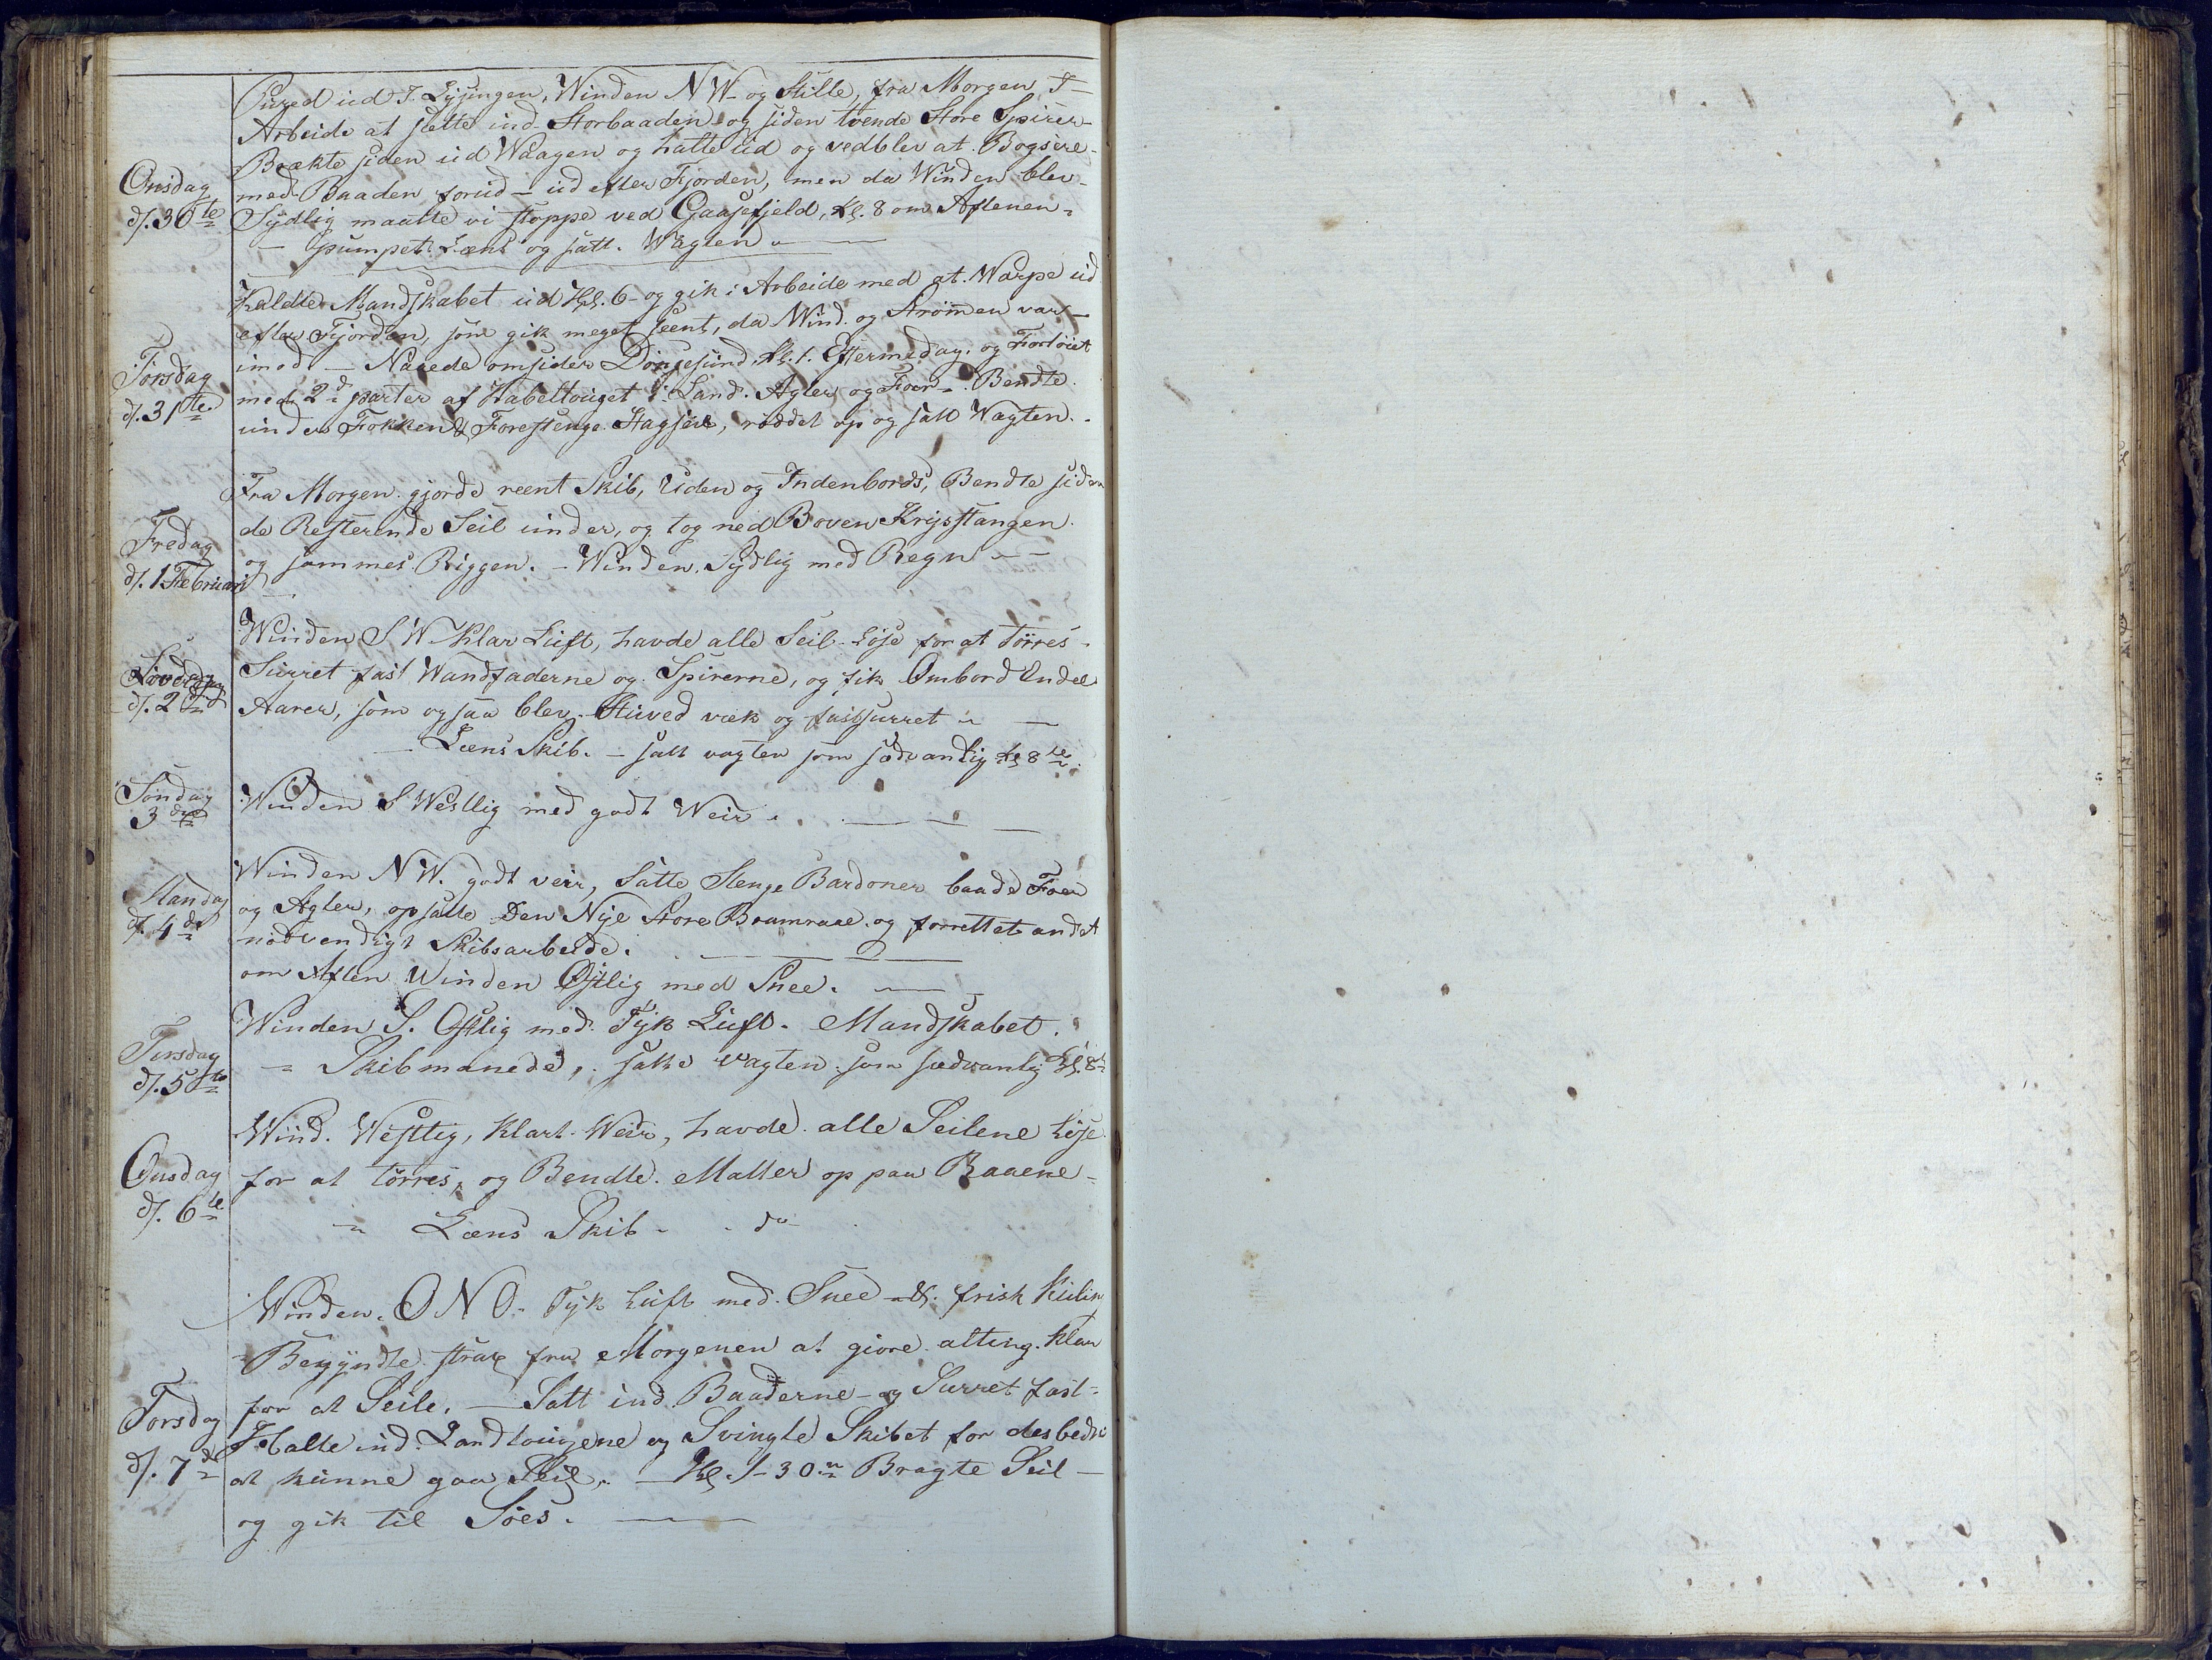 Pured ud I. Lysingen, Winden NW- og Stille, fra Morgen I-
Arbeide at sette ind Storbaaden og siden tvende Store Spirer-
Brækte siden ud Waagen og halte ud og vedblev at Bogsere-
Onsdag
d. 30te
med Baaden forud - ud efter Fjorden, men da Winden blev-
Sydlig maatte vi stoppe ved Gaasefjeld, Kl. 8 om Aftenen-
- pumpet Læns og satt. Wagten
Kaldte Mandskabet ud Kl. 6- og gik i Arbeide med at Warpe ud
efter Fjorden, som gik meget seent, da Wind og Strømen var-
Torsdag
d. 31te
imod - Naaede omsider Kl. 1. Eftermedag, og Fortøiet
med 2de parter af Kabeltouget i Land. Agter og Foer-. Bendte
under Fokken & Forestenge Stagseil, röddet op og satt Wagten.
Fra Morgen gjorde reent Skib, Uden og Indenbords, Bendte siden
Fredag
d. 1 Februari
de Resterende Seil under, og tog ned Boven Krysstangen
og sammes Riggen. - Winden Sydlig med Regn - -
Winden S W Klar Luft, havde alle Seil Löse for at Törres-
Löverdag
d. 2den
Surret fast Wandfaderne og Spirerne, og fik Ombord Endel
Aarer, som ogsaa blev Stuved væk og fastsurret -
- Læns Skib. - satt vagten som sædvanlig Kl 8te
Söndag
3die
Winden S Westlig med godt Weir.
Mandag
d. 4de
Winden N W. godt veir, Satte Stenge Bardoner baade Foer
og Agter, opsatte Den Nye Store Bramraae og forrettet andet
nödvendigt Skibsarbeide.
om Aften Winden Østlig med Snee.
Tirsdag
d. 5te
Winden S. Østlig med Tyk Luft. Mandskabet.
- Skibmanede, satte vagten som sædvanlig Kl. 8te
Onsdag
d. 6te
Wind. Westlig, Klart Weir, havde alle Seilene Löse
for at törres, og Bendte Matter op paa Raaene-
- Læns Skib - do
Winden. O N O. Tyk Luft med Snee - & frisk Kuling
Begyndte strax fra Morgenen at giöre alting klar
Torsdag
d. 7de
for at Seile. - Satt ind Baaderne - og Surret fast-
Halte ind Landtougene og Svingte Skibet for des bedre
at kunne gaae Seil. - Kl. 1-30m Bragte Seil -
og gik til Söes.